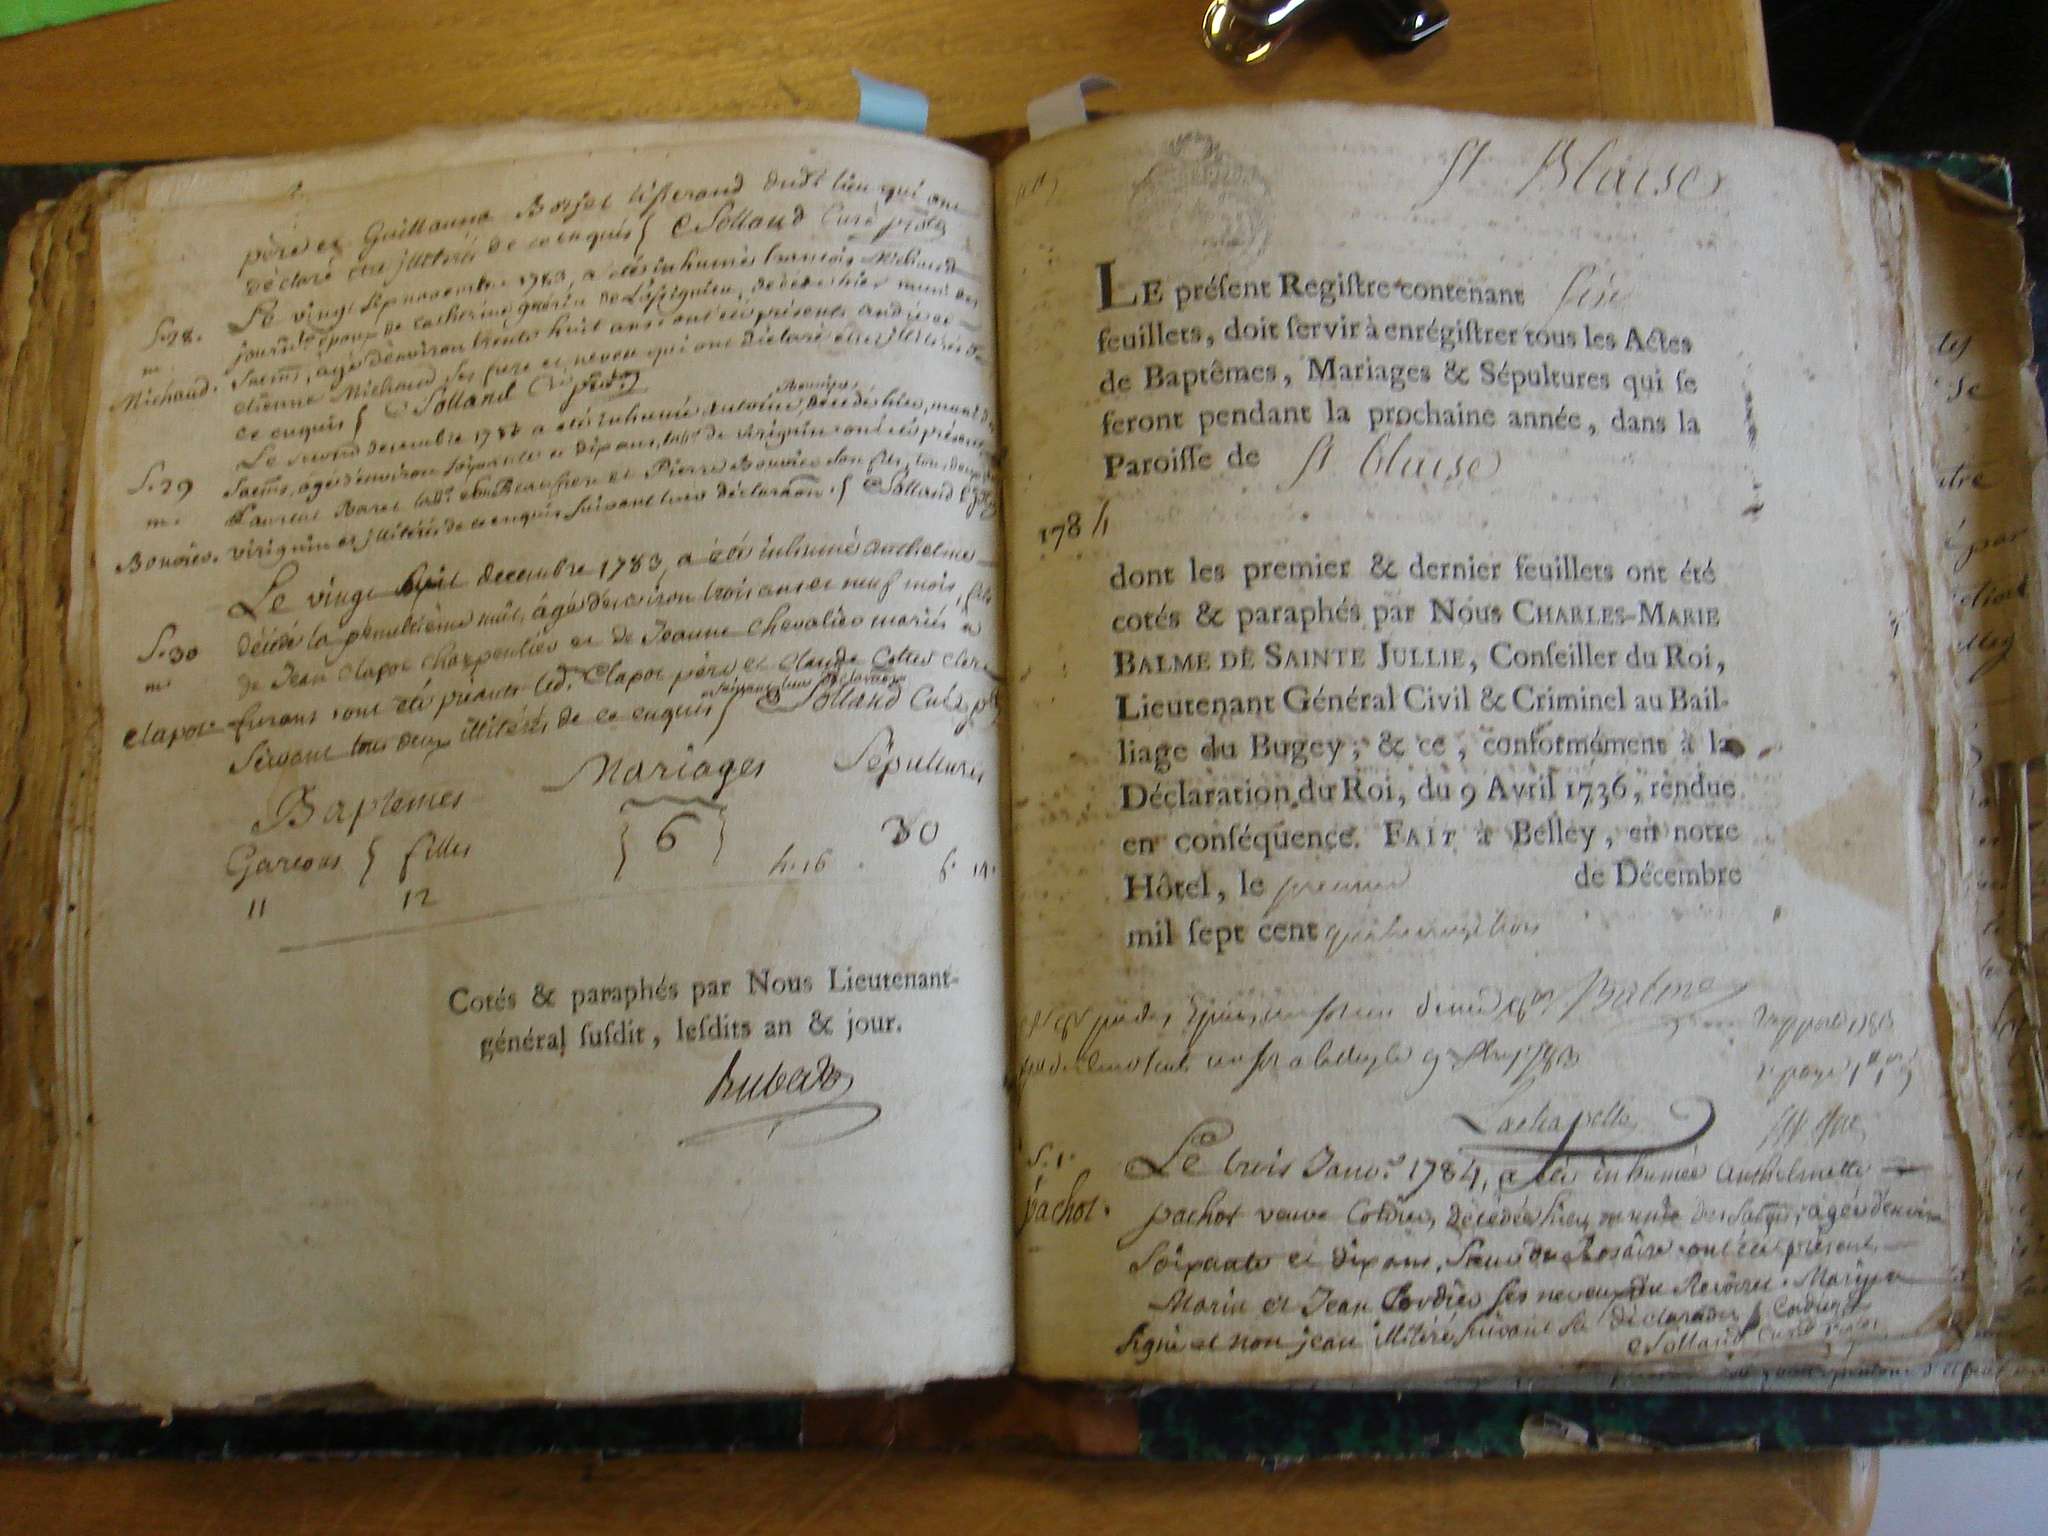 père et Guillaume Borjet tisserand dudt lieu qui ont
déclaré être illiterés de ce enquis Solland Curé
S. 28.
m.
Michaud.
Le vingt sep novembre 1783, a étés inhumés françois Michaud
journlr époux de catherine guérin de décédé hier muni des
Sacms, âgé d'environ trente huit ans. ont été présents andré et
etienne Michaud ses frere et neveu qui ont déclaré être illiterés
ce enquis Solland
S. 29
m.
Bouvier.
Le second decembre 1783 a été inhumé antoine Bouvier décédé hier, muni des
Sacms, âgé d'environ soixante et dix ans, labr de virignin. ont été présents
Laurent Baret labr beaufrere et Pierre Bouvier son fils, tous deux
virignin et illitérés de ce enquis suivant leurs déclaraôn. Solland
S. 30
m.
Clapot
Le vingt huit decembre 1783, a été inhumé anthelme
décédé la penultième nuit, âgé d'environ trois ans et neuf mois, fils
de Jean Clapot charpentier et de Jeanne Chevalier mariés a
furans. ont été présents led. Clapot père et Claude Cottier clerc
suivant leur déclaraôn
Servant tous deux illitérés de ce enquis Solland Curé
Baptemes Mariages Sépultures
Garçons filles 6 30
11 12 h. 16 f. 14.
Cotés & paraphés par Nous Lieutenant-
général ſuſdit, leſdits an & jour.
St Blaise
LE préſent Regiſtre contenant six
feuillets, doit ſervir à enrégiſtrer tous les Actes
de Baptêmes, Mariages & Sépultures qui ſe
feront pendant la prochaine année, dans la
Paroiſſe de St blaise
1784
dont les premier & dernier feuillets ont été
cotés & paraphés par Nous CHARLES-MARIE
BALME DE SAINTE JULLIE, Conſeiller du Roi,
Lieutenant Général Civil & Criminel au Bail-
liage du Bugey; & ce, conformément à la
Déclaration du Roi, du 9 Avril 1736, rendue
en conſéquence. FAIT à Belley, en notre
Hôtel, le premier de Décembre
mil ſept cent quatre vingt trois
Balme
Lachapelle
S. 1.
pachot.
Le trois Janvr 1784, a été inhumée Anthelmette
pachot veuve Cordier, décédée hier, munie des Sacms, âgée d'environ
soixante et dix ans, Sœur du Rosaire. ont été présents
Marin et Jean Cordier ses neveux Marin a
signé et non jean illitéré suivant sa déclaraôn Cordier
Solland curé